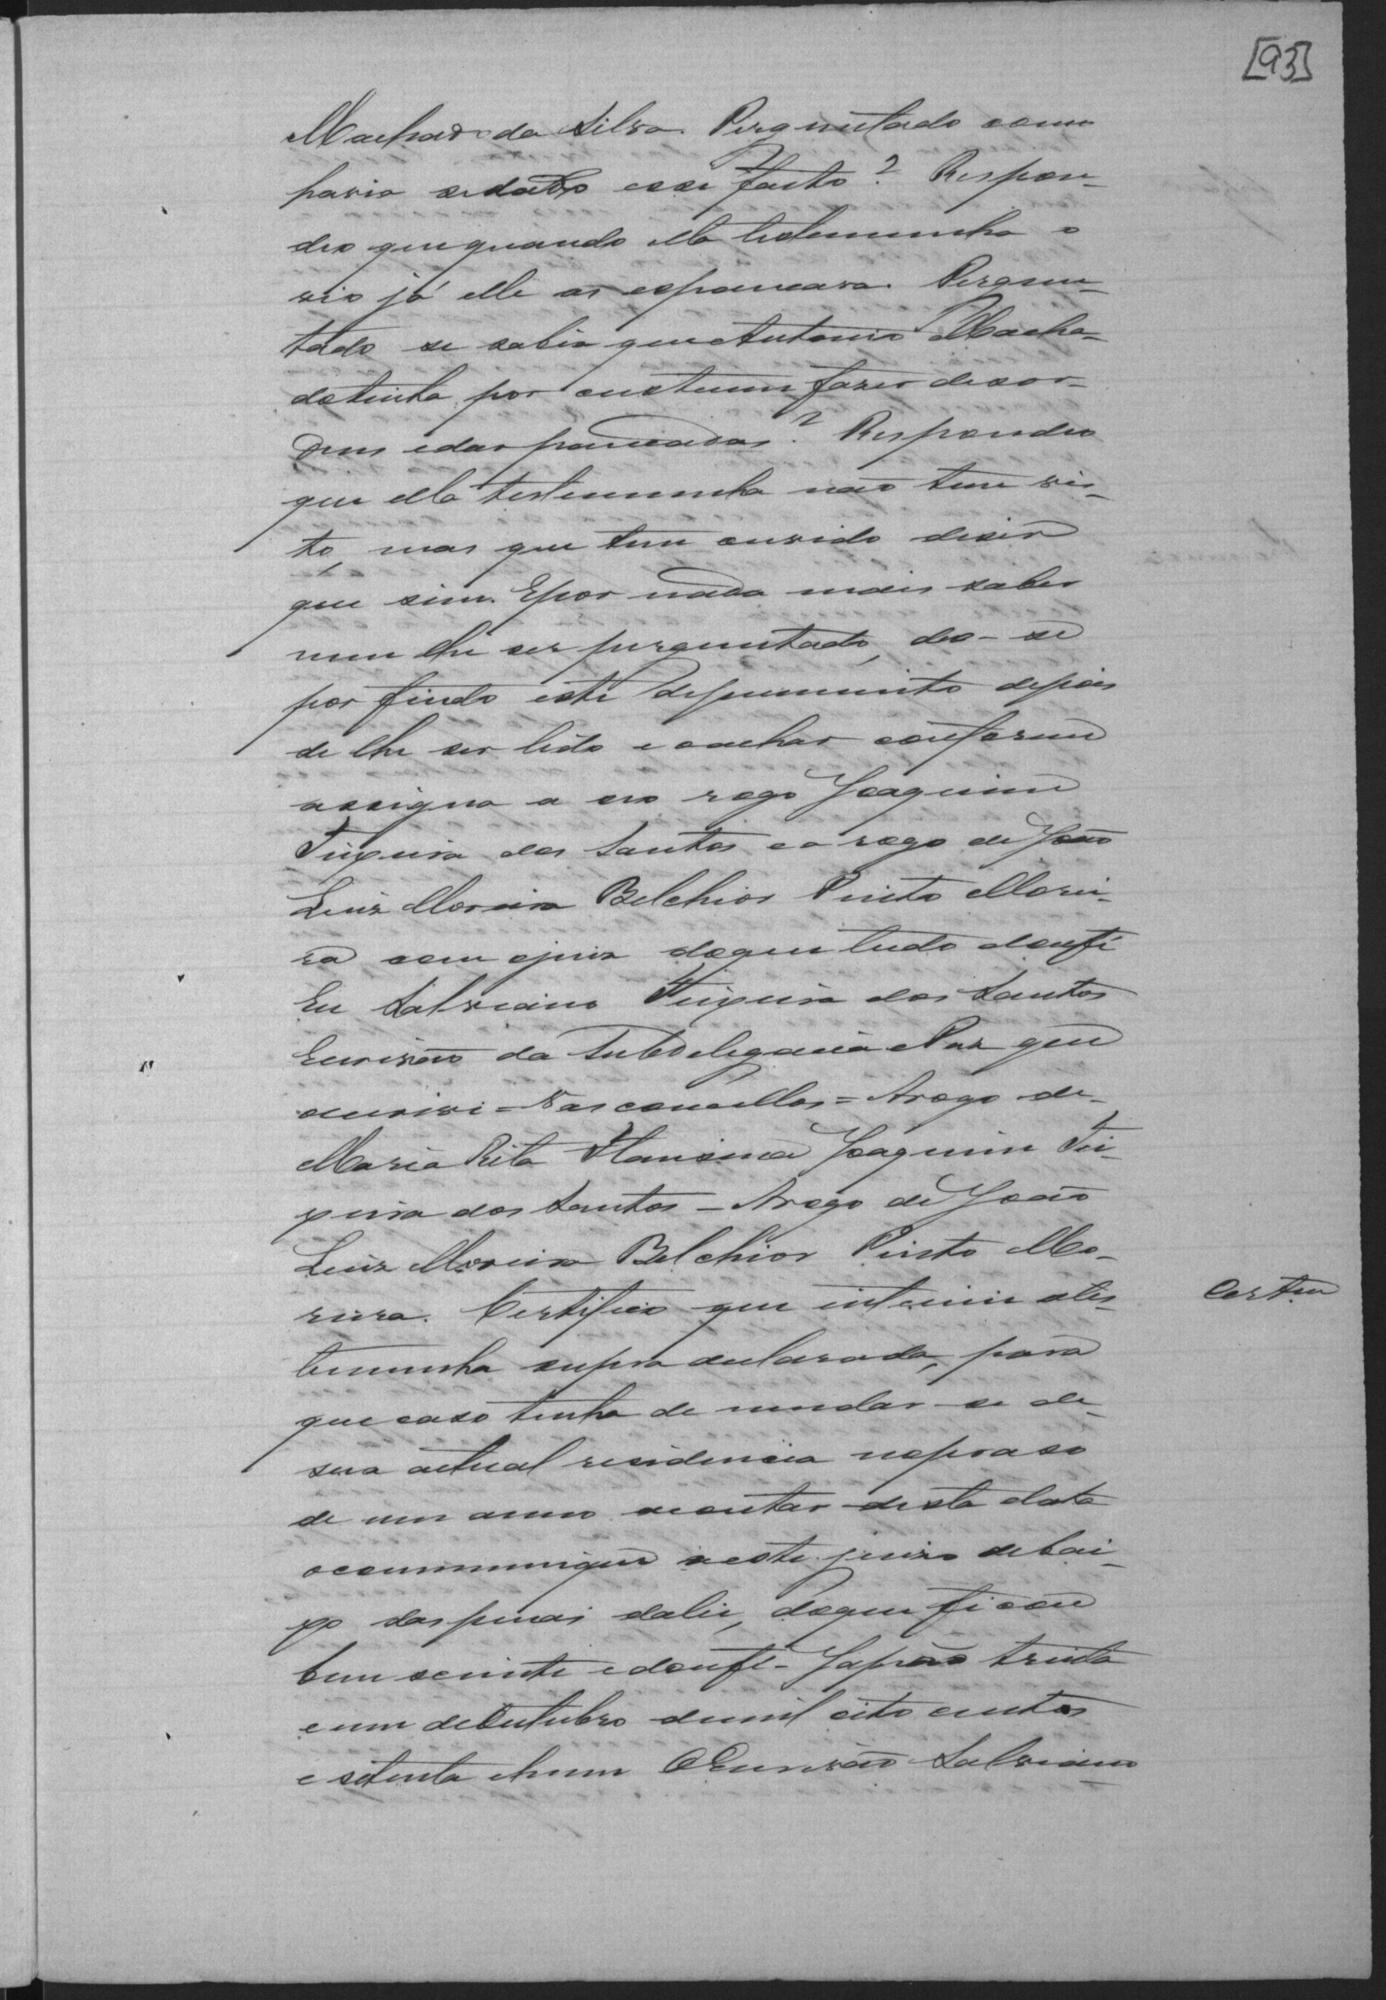 [93]
Machado da Silva. Perguntado como
havia sedado esse facto? Respon-
deo que quando ella testemunha o
vio já elle as espancava. Pergun-
tado se sabia que Antonio Macha-
dotinha por custume fazer desor-
dens edar pancadas? Respondeo
que ella testemunha não tem vis-
to, mas que tem ouvido diser
que sim. Epor nada mais saber
nem lhe ser perguntado, deo-se
por findo este depuimento depois
de lhe ser lido e achar conforme
assigna a seo rogo Joaquim
Teixeira dos Santos ea rogo de João
Luiz Moreira Belchior Pinto Morei-
ra com ojuiz doque tudo doufé
Eu Salviano Teixeira dos Santos
Escrivão da Subdelegacia e Paz que
escrivi = Vasconcellos = Arogo de
Maria Rita Joaquim Tei-
xeira dos Santos - Arogo de João
Luiz Moreira Belchior Pinto Mo-
reira. Certifico que intimei ates-
temunha supra declarada, para
que caso tenha de mudar-se de
sua actual residencia nopraso
de um anno acontar desta data
ocommunique aeste juizo debai-
xo das penas dalei, doque ficou
bem sciente edoufé - Japão trinta
e um deOutubro demil oito centos
e setenta ehum OEscrivão Salviano
Certam